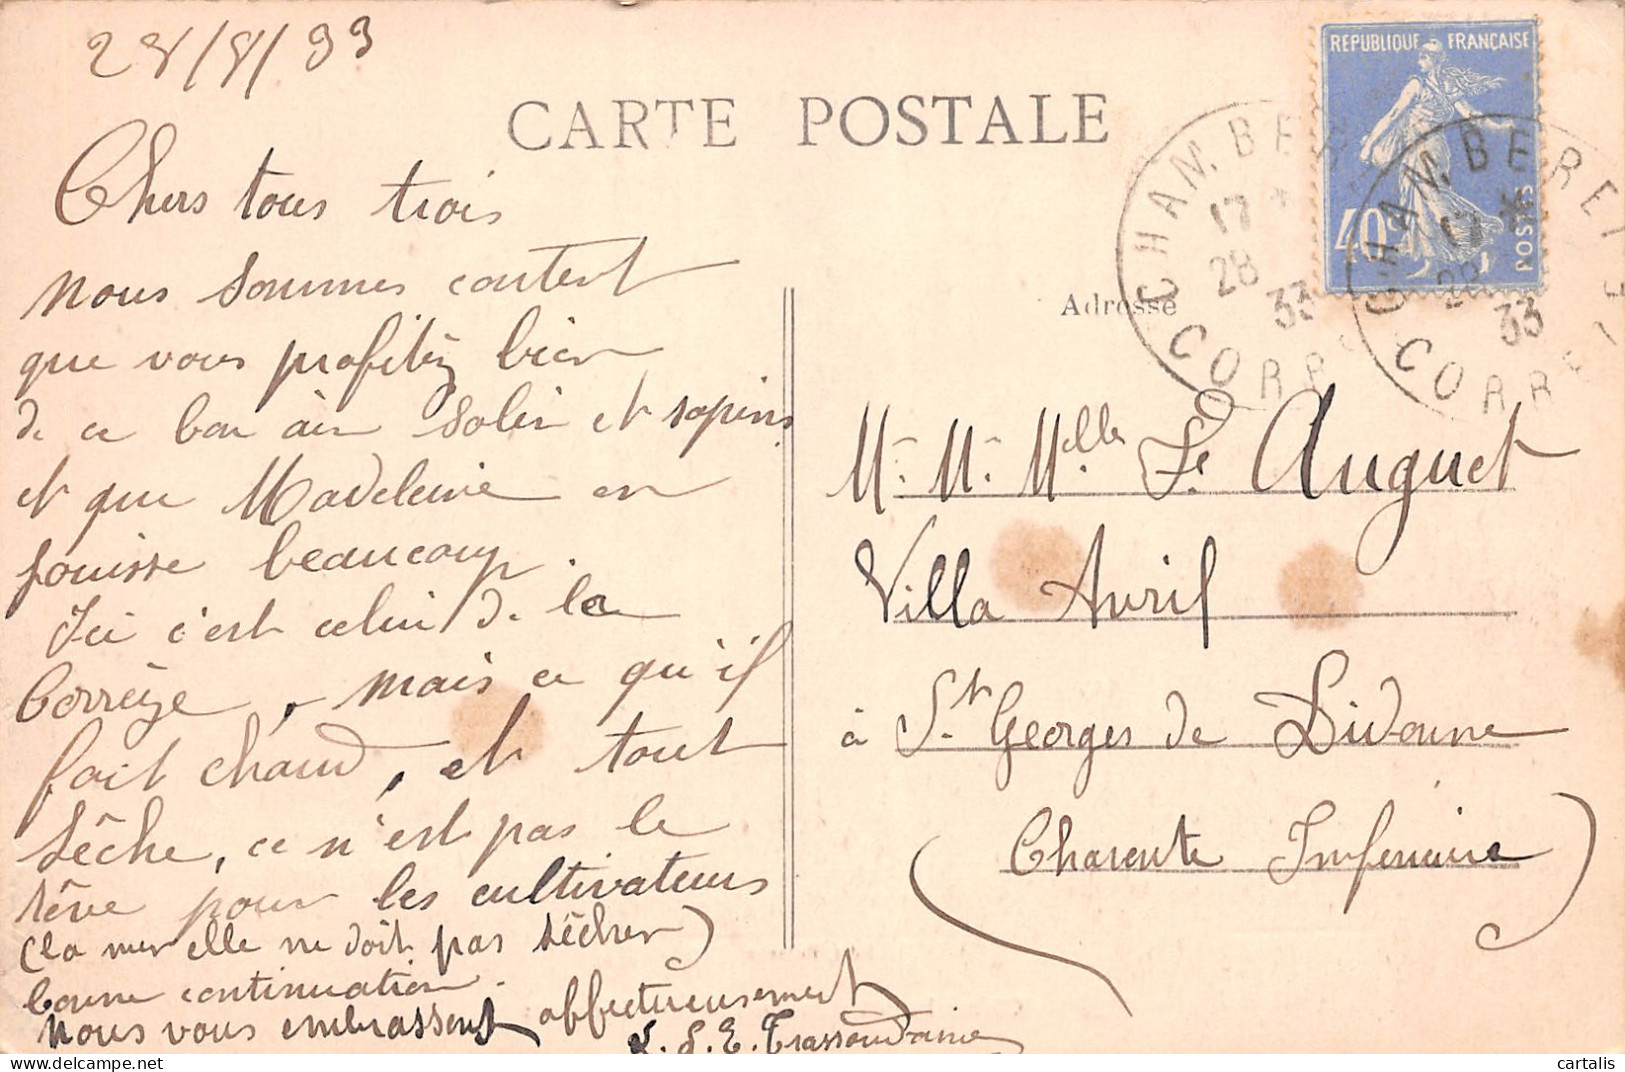 28/8/33
CARTE POSTALE
REPUBLIQUE FRANÇAISE
40c
POSTES
CHAMBERET
17 *
28
33
CORRÈZE
CHAMBERET
17 *
28
33
CORRÈZE
Adresse
Chers tous trois
nous sommes content
que vous profitéz bien
de ce bon air salin et sapins
et que Madeleine en
jouisse beaucoup.
Ici c'est celui de la
Corrèze, mais ce qu'il
fait chaud, et tout
sèche, ce n'est pas le
rêve pour les cultivateurs
(la mer elle ne doit pas sècher)
bonne continuation.
Nous vous embrassent affectueusement
L. S. E.
Mr. M. Melle Le Auguet
Villa Avril
à St Georges de Didonne
(Charente Inferieure)
cartalis